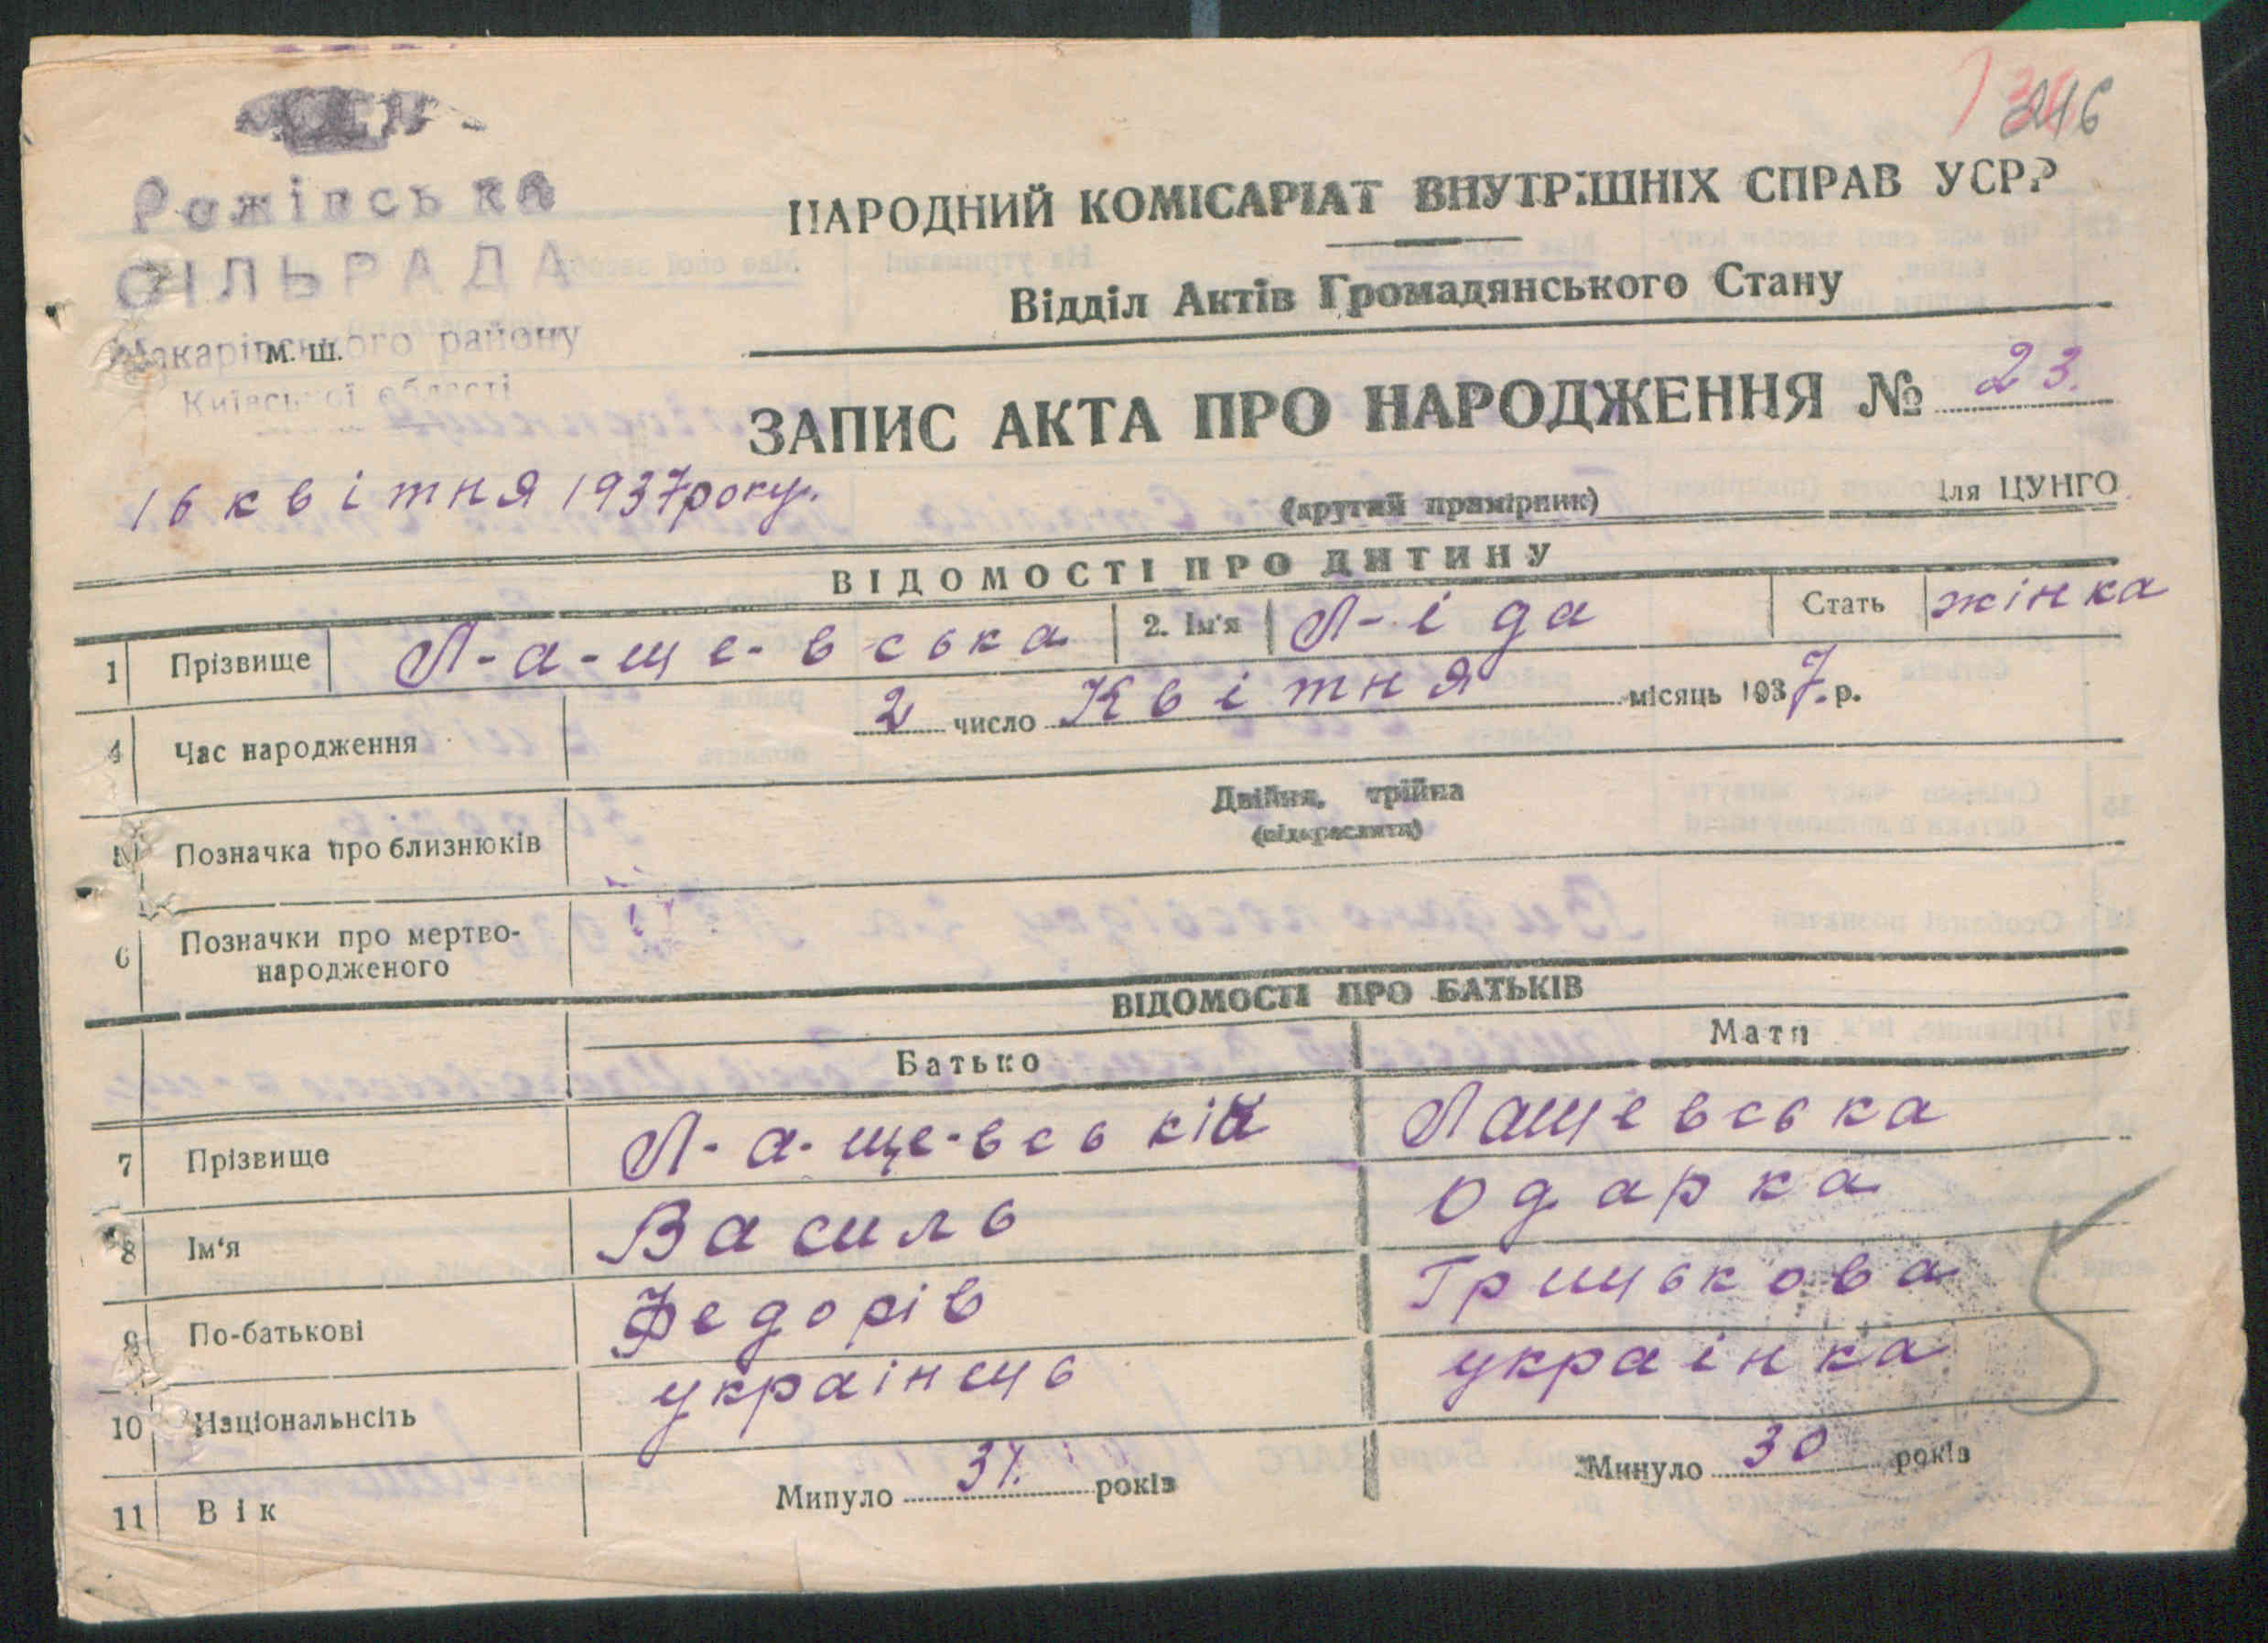 246
Рожівська
СІЛЬРАДА
Макарівського району
Київської області
м. ш.
НАРОДНИЙ КОМІСАРІАТ ВНУТРІШНІХ СПРАВ УСРР
Відділ Актів Громадянського Стану
ЗАПИС АКТА ПРО НАРОДЖЕННЯ № 23.
16 квітня 1937 року.
(другий примірник)
Для ЦУНГО
ВІДОМОСТІ ПРО ДИТИНУ
1 Прізвище Л-а-ще-вська 2. Ім'я Л-іда Стать жінка
4 Час народження 2 число Квітня місяць 1937. р.
5 Позначка про близнюків Двійня, трійня
(підкреслити)
6 Позначки про мертво-
народженого
ВІДОМОСТІ ПРО БАТЬКІВ
Батько Мати
7 Прізвище Л-а-ще-вській Лащевська
8 Ім'я Василь Одарка
9 По-батькові Федорів Грицькова
10 Національнсіть українець українка
11 Вік Минуло років Минуло 30 років